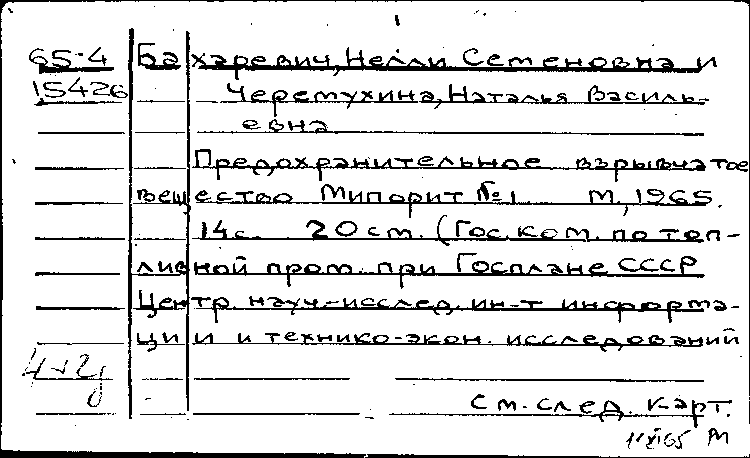 65-4 Бахаревич, Нелли Семеновна и
15426 Черемухина, Наталья Василь-
евна
Предохранительное взрывчатое
вещество Мипорит №1 М., 1965.
14 с. 20 см. (Гос. ком. по топ-
ливной пром. при Госплане СССР
Центр. науч.-исслед. ин-т информа-
ции и технико-экон. исследований
См. след. карт.
11 XI 65